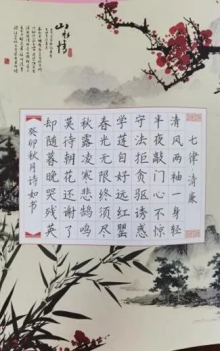 七律 清廉
清风两袖一身轻
半夜敲门心不惊
守法拒贪驱诱惑
学莲自好远红罂
春光无限终须尽
秋露凌寒悲鹄鸣
莫待朝花还谢了
却随暮晚哭残英
癸卯秋月诗如书
山水情